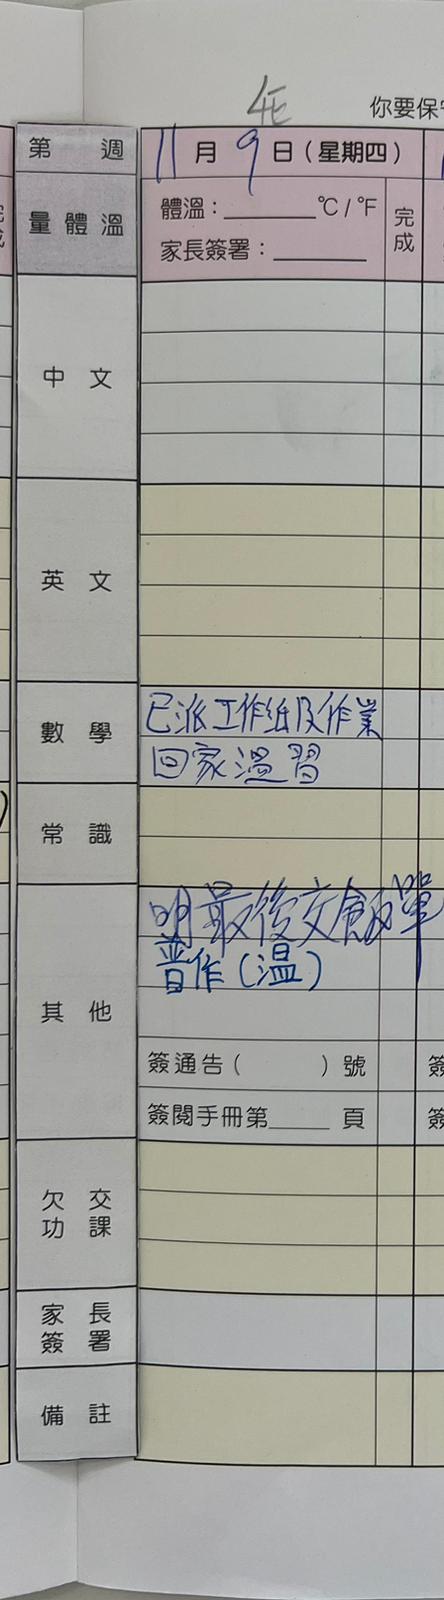 4E
你要保守
第 週
11月9日(星期四)
量體溫
體溫：______°C/°F
完成
家長簽署：______
中文
英文
數學
已派工作紙及作業
回家溫習
常識
其他
明最後交飯單
普作(溫)
簽通告( )號
簽閱手冊第____頁
欠交功課
家長簽署
備註